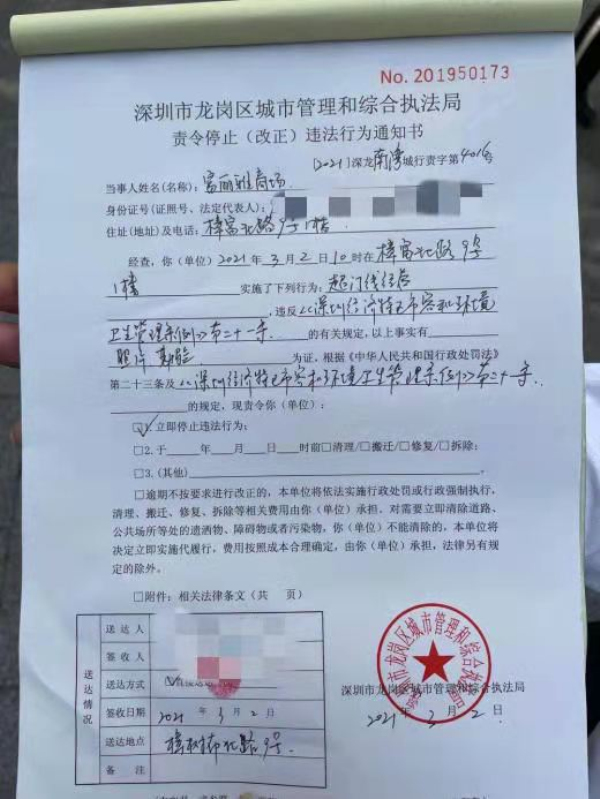 No. 201950173
深圳市龙岗区城市管理和综合执法局
责令停止（改正）违法行为通知书
[2021]深龙南湾城行责字第4016号
当事人姓名(名称)：富丽雅商场
身份证号(证照号、法定代表人)：
住址(地址)及电话：樟富北路9号1栋
经查，你（单位）2021年3月2日10时在樟富北路9号
1栋 实施了下列行为：超门线经营
，违反《深圳经济特区市容和环境
卫生管理条例》第二十一条 的有关规定，以上事实有
照片 勘验 为证，根据《中华人民共和国行政处罚法》
第二十三条及《深圳经济特区市容和环境卫生管理条例》第二十一条
的规定，现责令你（单位）：
☑1.立即停止违法行为；
□2.于 年 月 日 时前□清理/□搬迁/□修复/□拆除；
□3.(其他) 。
□逾期不按要求进行改正的，本单位将依法实施行政处罚或行政强制执行，
清理、搬迁、修复、拆除等相关费用由你（单位）承担。对需要立即清除道路、
公共场所等处的遗洒物、障碍物或者污染物，你（单位）不能清除的，本单位将
决定立即实施代履行，费用按照成本合理确定，由你（单位）承担，法律另有规
定的除外。
□附件：相关法律条文（共 页）
送达情况
送达人
签收人
送达方式
签收日期 2021年3月2日
送达地点 樟树布北路9号
备注
深圳市龙岗区城市管理和综合执法局
深圳市龙岗区城市管理和综合执法局
2021年3月2日